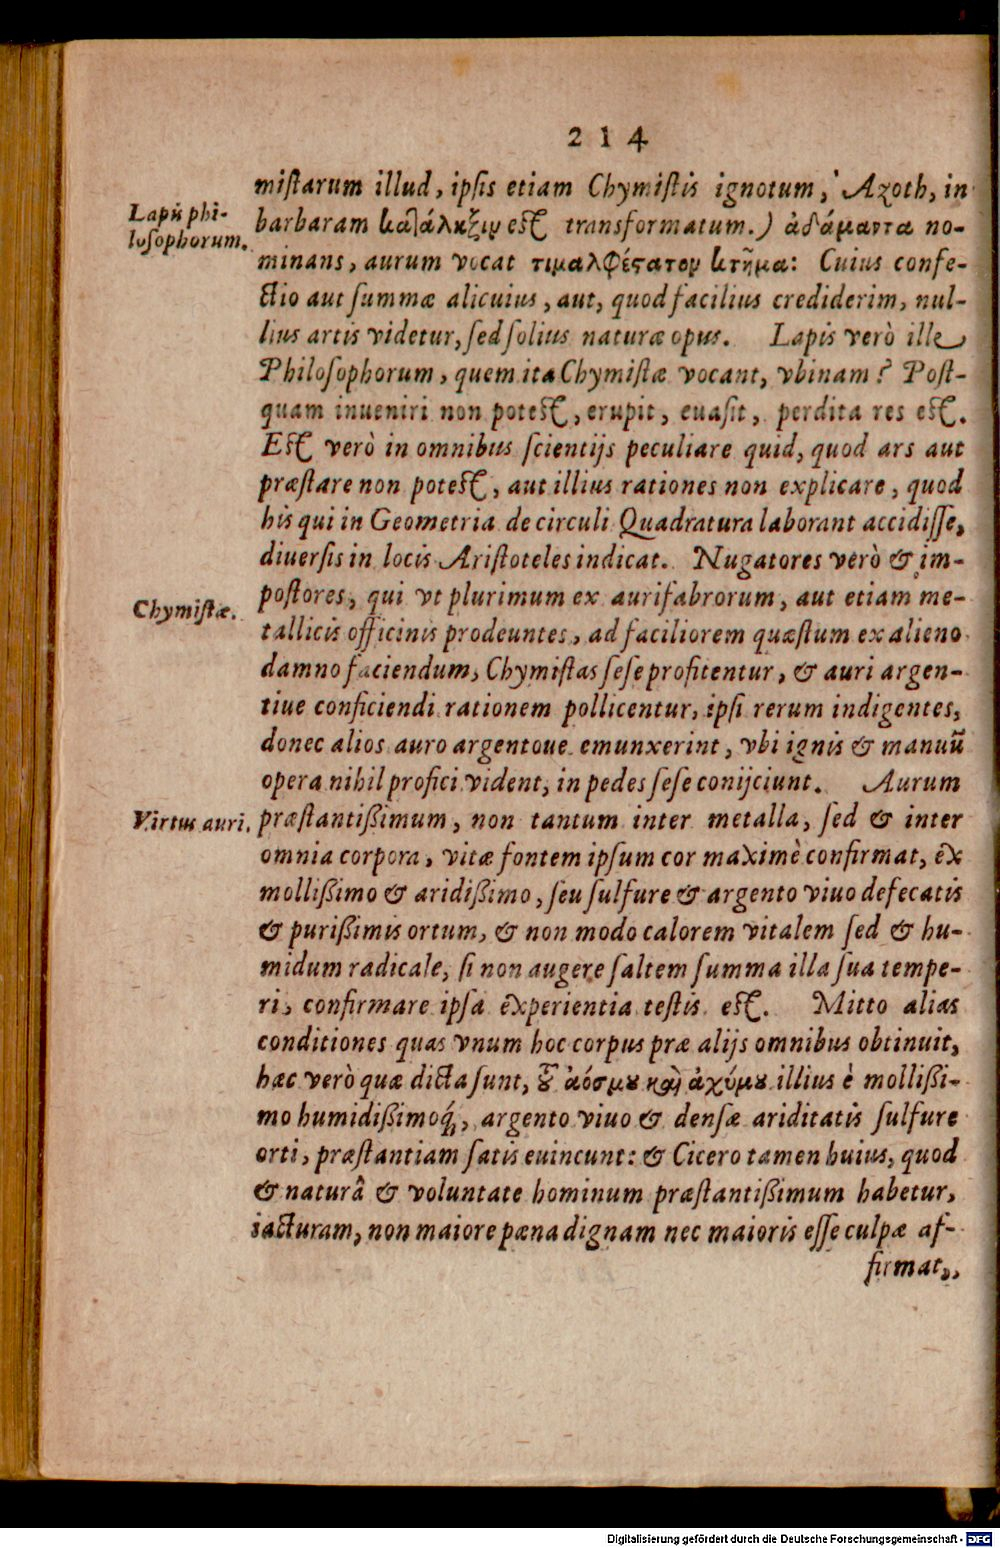 214
miſtarum illud, ipſis etiam Chymiſtis ignotum, Azoth, in
Lapis phi-
loſophorum.
barbaram καταλκξιν eſt transformatum.) ἀδάμαντα no-
minans, aurum vocat τιμαλφέστατον κτῆμα: Cuius confe-
ctio aut ſummæ alicuius, aut, quod facilius crediderim, nul-
lius artis videtur, ſed ſolius naturæ opus. Lapis verò ille
Philoſophorum, quem ita Chymiſtæ vocant, vbinam? Poſt-
quam inueniri non poteſt, erupit, euaſit, perdita res eſt.
Eſt verò in omnibus ſcientijs peculiare quid, quod ars aut
præſtare non poteſt, aut illius rationes non explicare, quod
his qui in Geometria de circuli Quadratura laborant accidiſſe,
diuerſis in locis Ariſtoteles indicat. Nugatores verò & im-
Chymiſtæ.
poſtores, qui vt plurimum ex aurifabrorum, aut etiam me-
tallicis officinis prodeuntes, ad faciliorem quæſtum ex alieno
damno faciendum, Chymiſtas ſeſe profitentur, & auri argen-
tiue conficiendi rationem pollicentur, ipſi rerum indigentes,
donec alios auro argentoue emunxerint, vbi ignis & manuũ
opera nihil profici vident, in pedes ſeſe conijciunt. Aurum
Virtus auri.
præſtantißimum, non tantum inter metalla, ſed & inter
omnia corpora, vitæ fontem ipſum cor maximè confirmat, ex
mollißimo & aridißimo, ſeu ſulfure & argento viuo defecatis
& purißimis ortum, & non modo calorem vitalem ſed & hu-
midum radicale, ſi non augere ſaltem ſumma illa ſua tempe-
ri, confirmare ipſa experientia teſtis eſt. Mitto alias
conditiones quas vnum hoc corpus præ alijs omnibus obtinuit,
hæc verò quæ dicta ſunt, τȣ͂ ἀόσμȣ καὶ ἀχύμȣ illius è mollißi-
mo humidißimoq́;, argento viuo & denſæ ariditatis ſulfure
orti, præſtantiam ſatis euincunt: & Cicero tamen huius, quod
& naturâ & voluntate hominum præſtantißimum habetur,
iacturam, non maiore pœna dignam nec maioris eſſe culpæ af-
firmat,
Digitalisierung gefördert durch die Deutsche Forschungsgemeinschaft - DFG